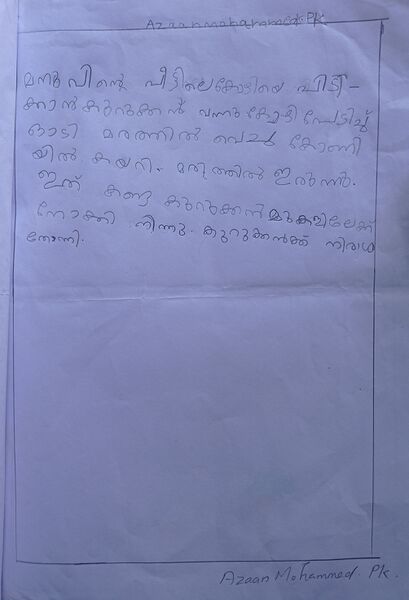 Azaanmohammed. Pk
മനുവിന്റെ വീട്ടിലെ കോഴിയെ പിടി-
ക്കാൻ കുറുക്കൻ വന്നു കോഴി പേടിച്ച്
ഓടി മരത്തിൽ വെച്ച കോണി
യിൽ കയറി. മരത്തിൽ ഇരുന്നു.
ഇത് കണ്ട കുറുക്കൻ മുകളിലേക്ക്
നോക്കി നിന്നു. കുറുക്കന്ക്ക് നിരാശ
തോന്നി.
Azaan Mohammed. Pk.